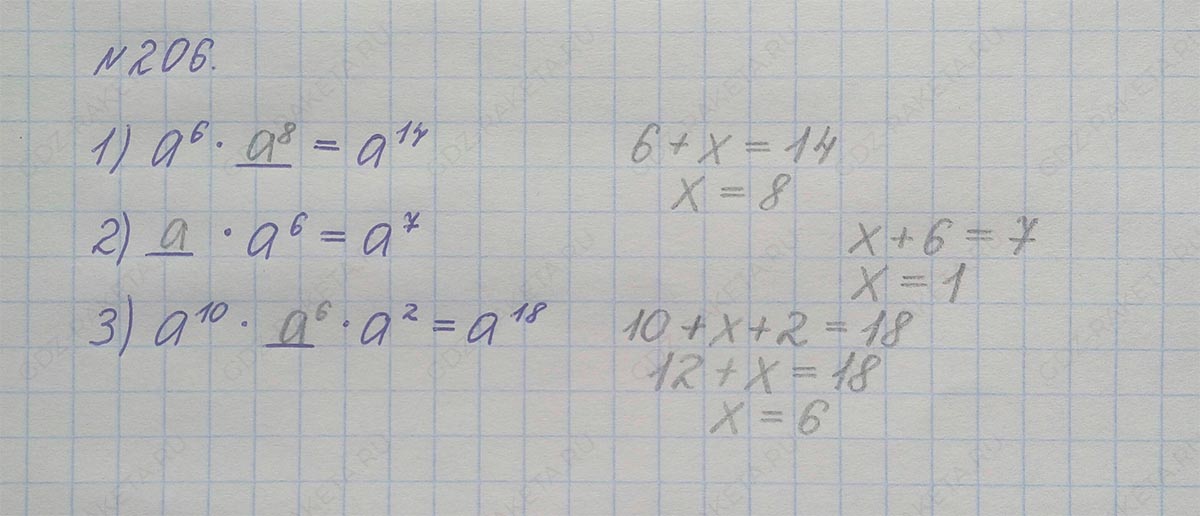 №206.
1) a⁶ · a⁸ = a¹⁴
6 + x = 14
x = 8
2) a · a⁶ = a⁷
x + 6 = 7
x = 1
3) a¹⁰ · a⁶ · a² = a¹⁸
10 + x + 2 = 18
12 + x = 18
x = 6
GDZ.RAKETA.RU